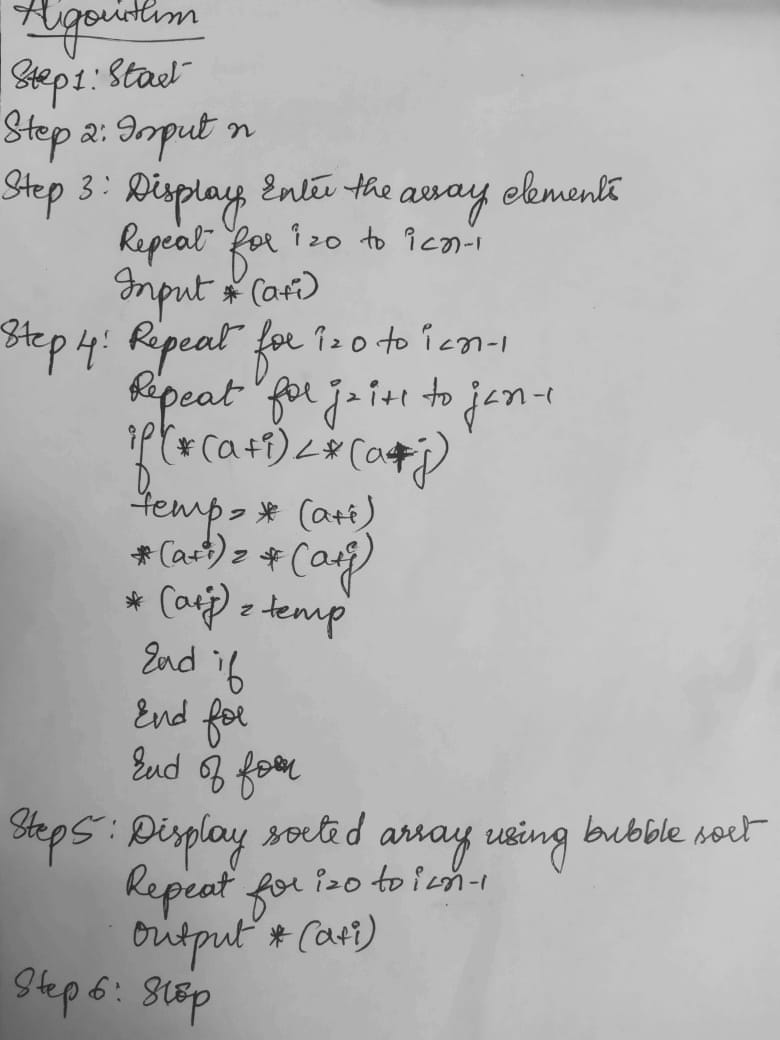 Algorithm
Step1: Start
Step 2: Input n
Step 3: Display Enter the array elements
Repeat for i=0 to i<n-1
Input *(a+i)
Step 4: Repeat for i=0 to i<n-1
Repeat for j=i+1 to j<n-1
if(*(a+i)<*(a+j)
temp=*(a+i)
*(a+i)=*(a+j)
*(a+j)=temp
End if
End for
End of for
Step5: Display sorted array using bubble sort
Repeat for i=0 to i<n-1
Output *(a+i)
Step 6: Stop